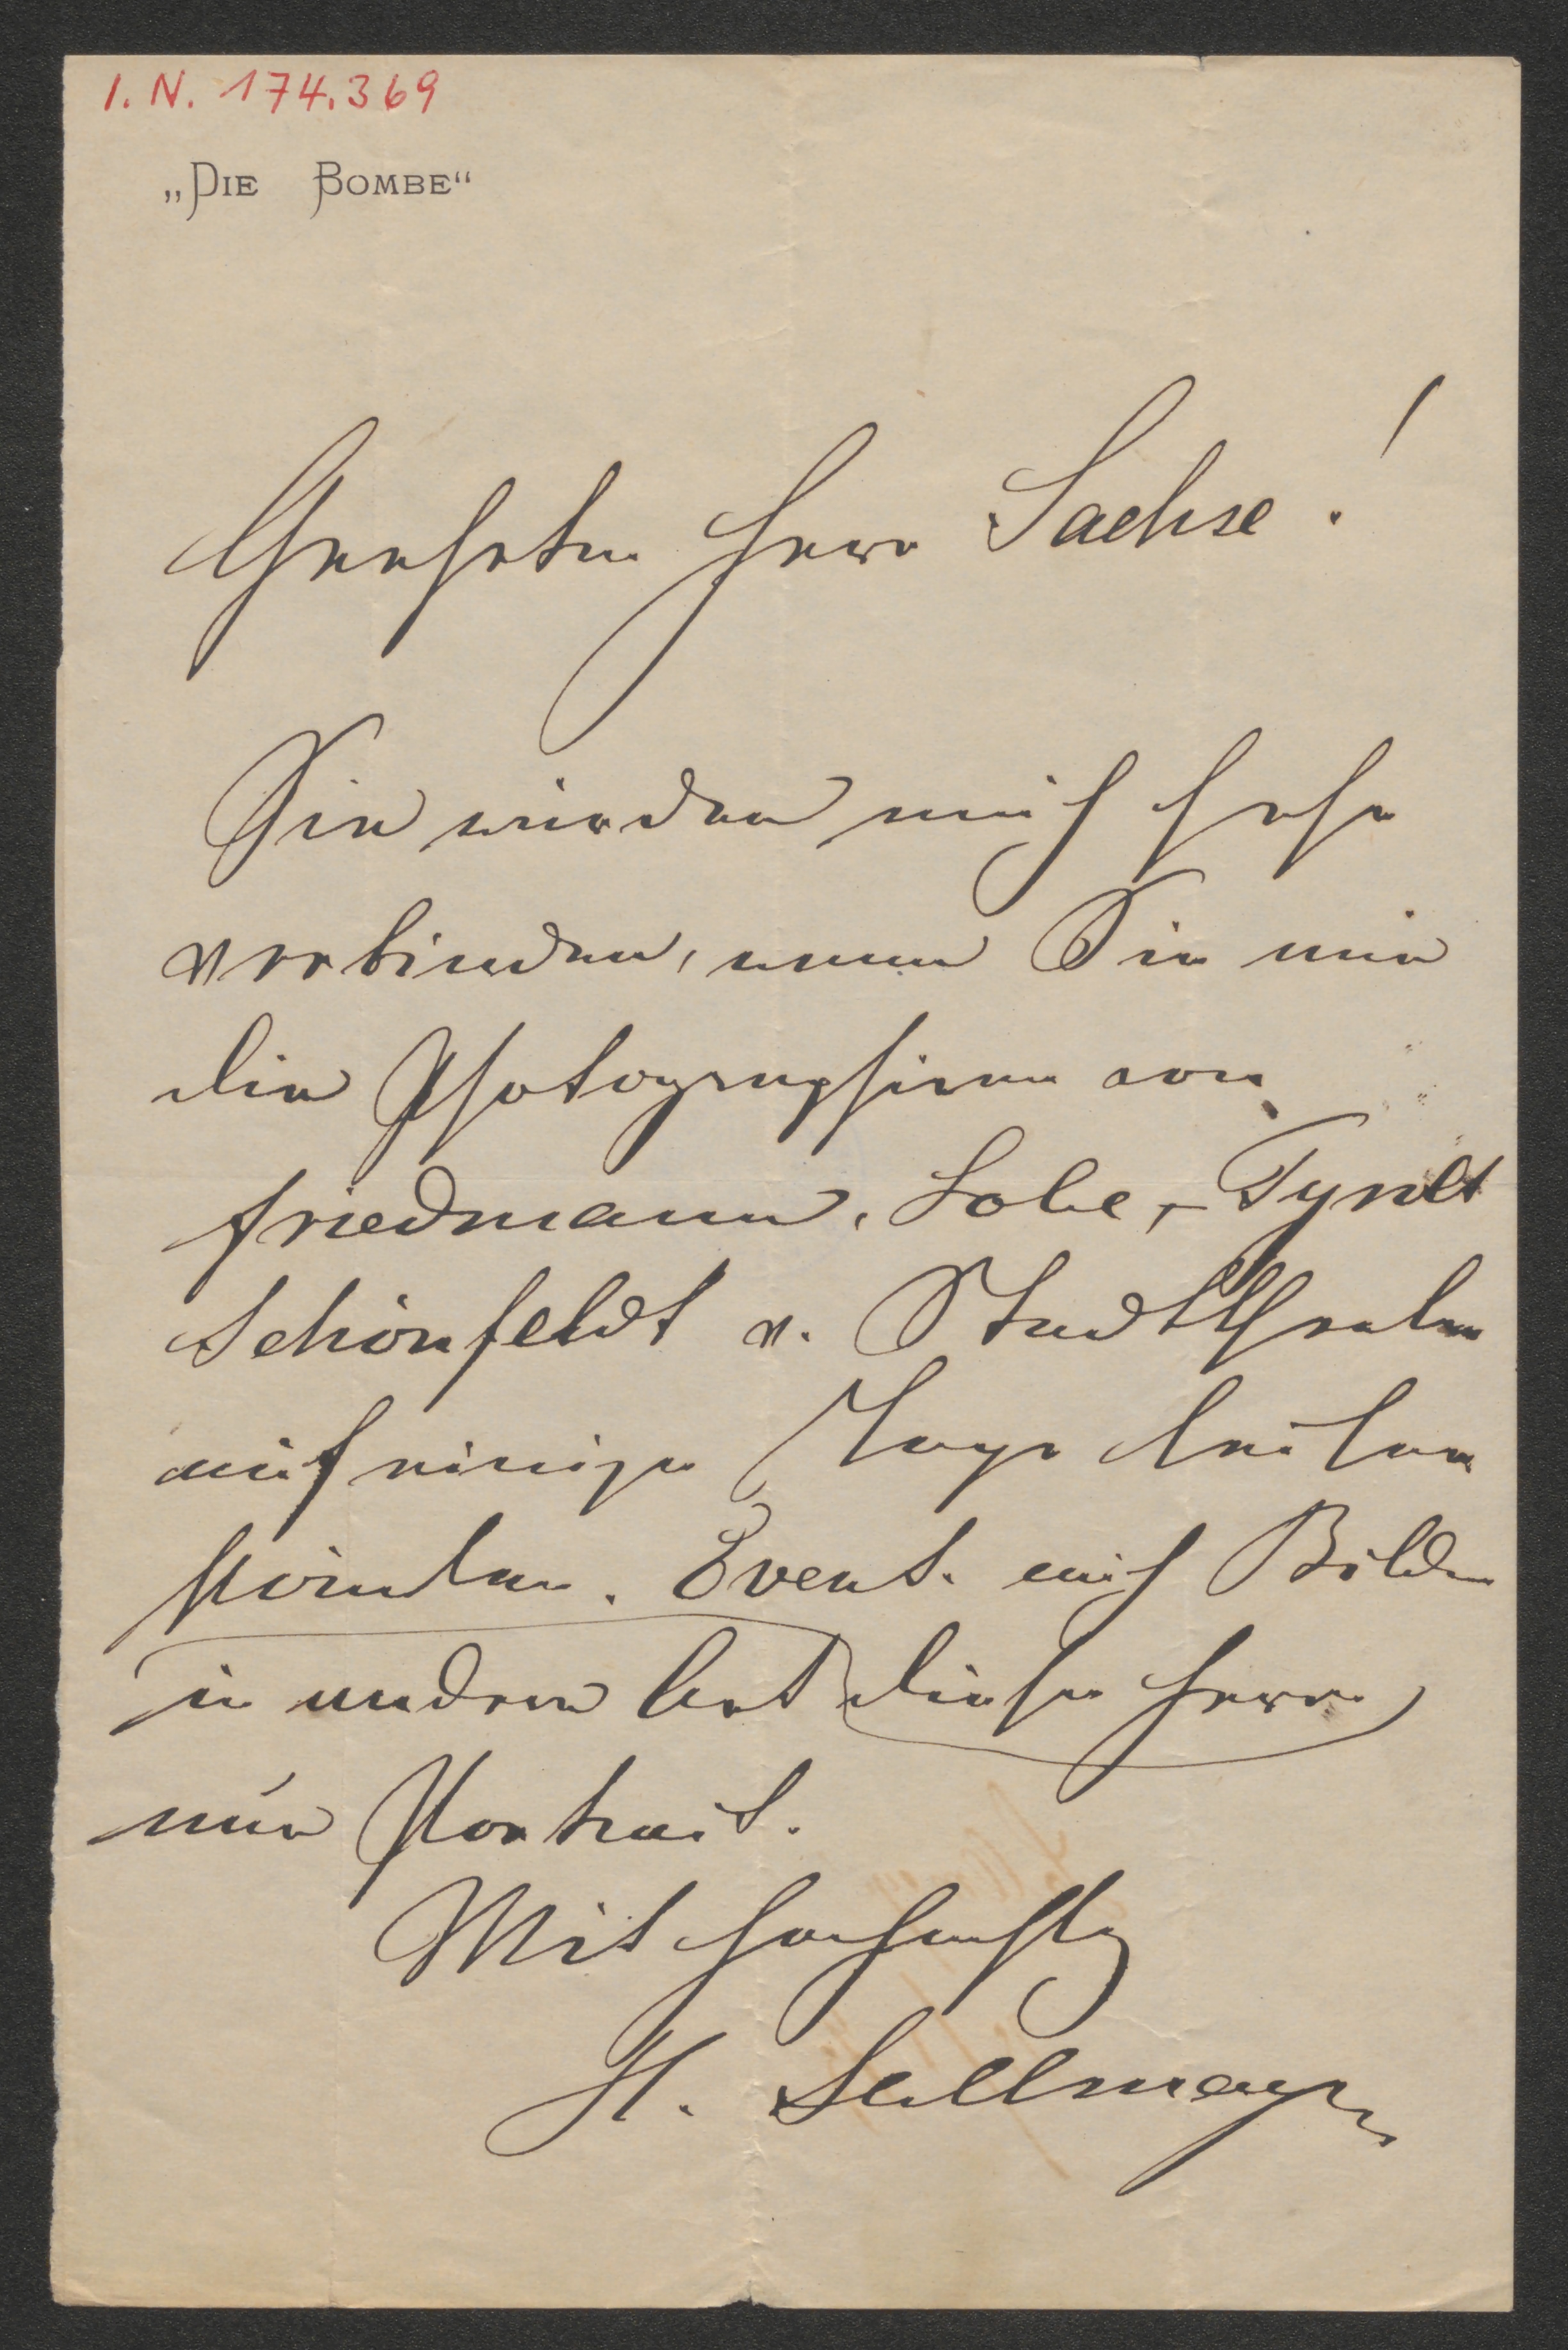 I. N. 174.369
„DIE BOMBE“
Geehrter Herr Sachse!
Sie würden mich sehr
verbinden, wenn Sie mir
die Photographieen von
Friedmann, Lobe, Tyrolt
Schönfeldt v. Stadttheater
auf einige Tage leihen
könnten. Event. auch Bilder
in andrer Art dieser Herren
nur Portrait.
Mit Hochachtg
H. Sellmayer